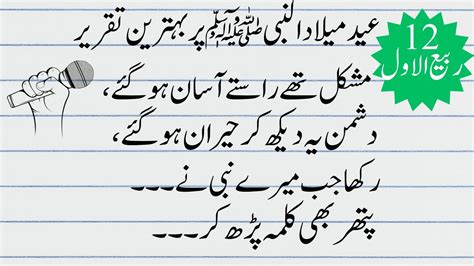 عید میلاد النبی ﷺ پر بہترین تقریر
12
ربیع الاول
مشکل تھے راستے آسان ہو گئے،
دشمن یہ دیکھ کر حیران ہو گئے،
رکھا جب میرے نبی نے۔۔۔۔
پتھر بھی کلمہ پڑھ کر۔۔۔۔